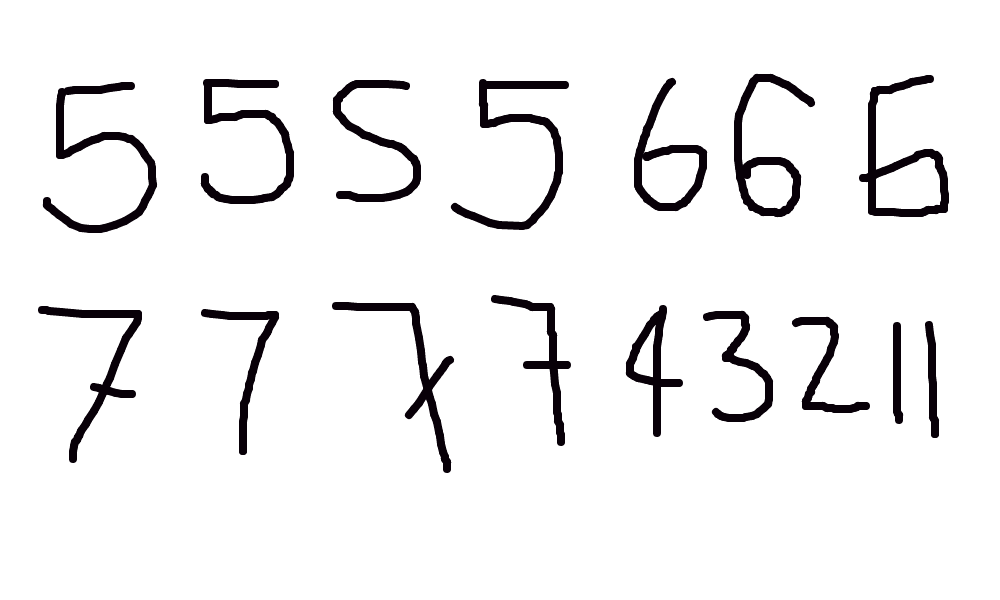 5 5 5 5 6 6 6
7 7 7 7 4 3 2 1 1